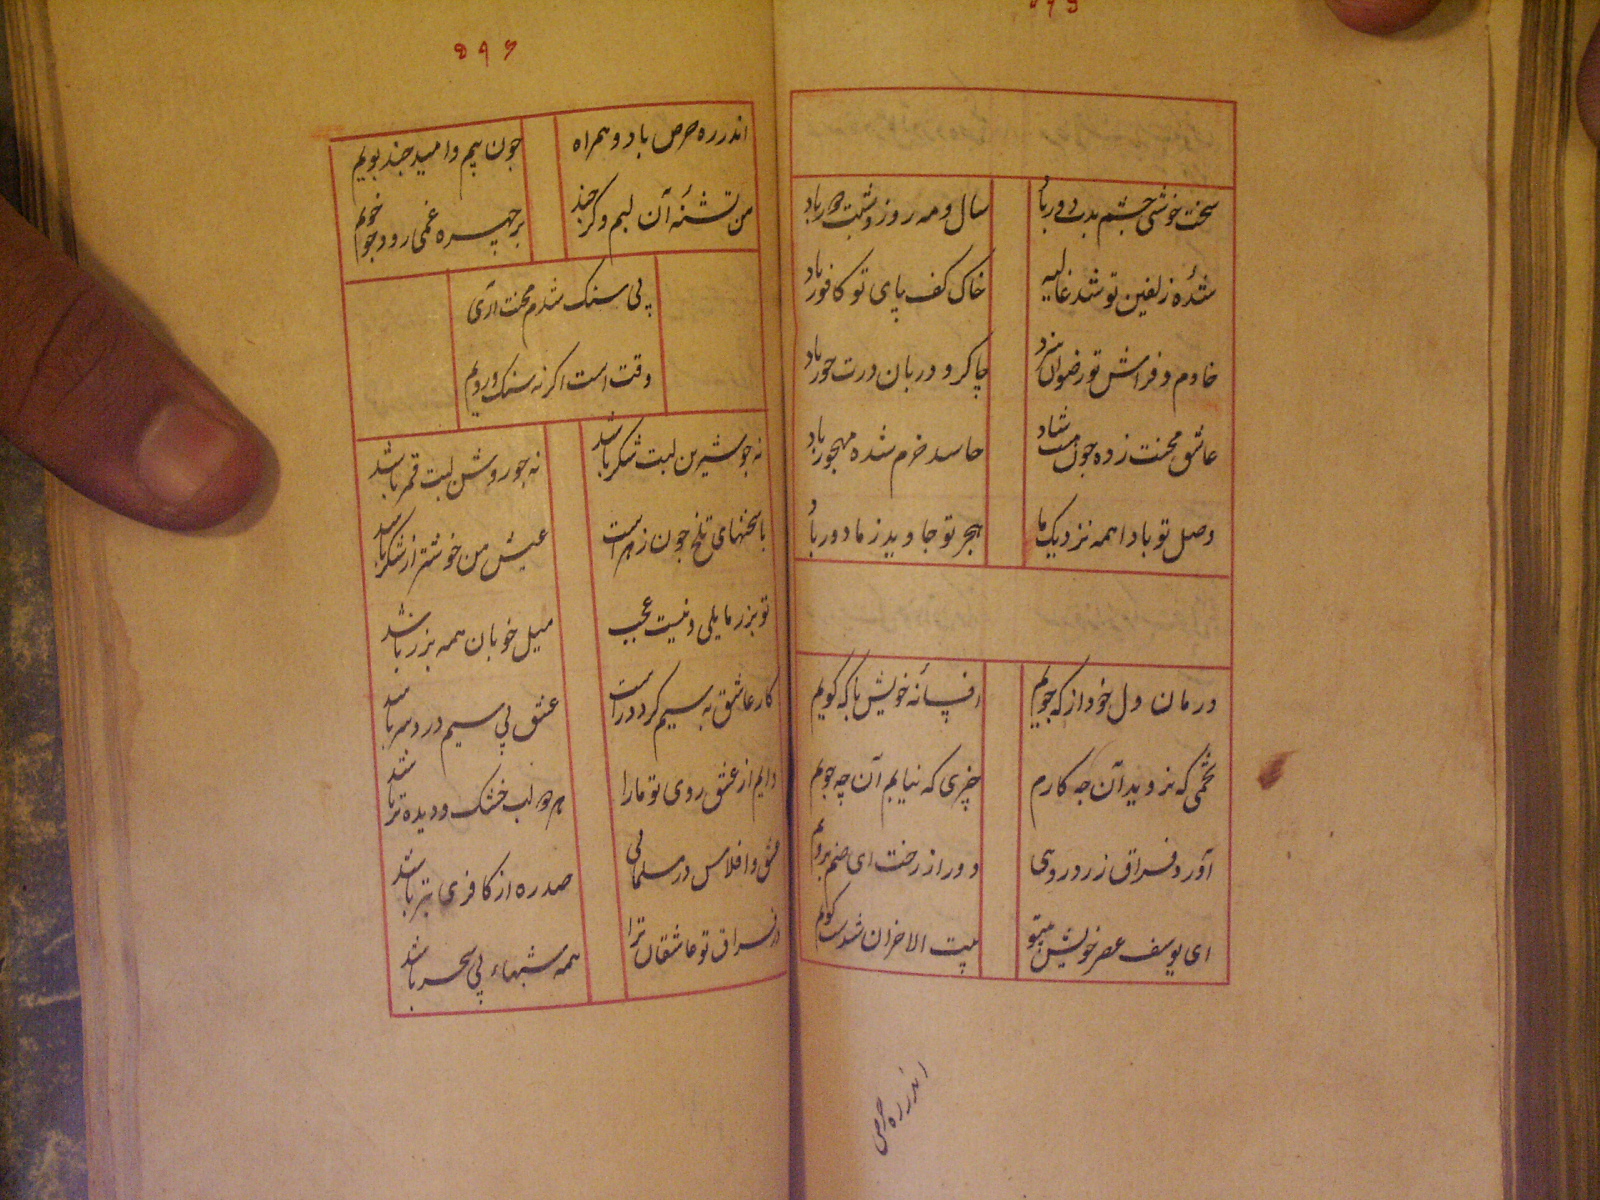 سخت خوشی چشم بدت دور باد
سال و مه روز و شبت سور باد
شدۀ زلفین تو شد غالیه
خاک کف پای تو کافور باد
خادم و فراش تو رضوان سزد
چاکر و دربان درت حور باد
عاشق محنت زده چون هست شاد
حاسد خرم شده مهجور باد
وصل تو بادا همه نزدیک ما
هجر تو جاوید ز ما دور باد
درمان دل خود از که جویم
افسانۀ خویش با که گویم
تخمی که نروید آن چه کارم
چیزی که نیابم آن چه جویم
آورد فراق زردرویی
دور از رخت ای صنم برویم
ای یوسف عصر خویش بی تو
بیت الاحزان شدست کویم
اندر ره حرص
۵۹۶
اندر ره حرص باد و همراه
چون بیم و امید چند پویم
من تشنۀ آن لبم و گر چند
بر چهره غمی رود چو جویم
بی سنگ شدم محنت آری
وقت است اگر نه سنگ و رویم
نه چو شیرین لبت شکر باشد
نه چو روشن لبت قمر باشد
با سخنهای تلخ چون زهرت
عیش من خوشتر از شکر باشد
تو بزر مایلی و نیست عجب
میل خوبان همه بزر باشد
کار عاشق به سیم گردد راست
عشق بی سیم دردسر باشد
دایم از عشق روی تو ما را
لب خشک و دیده تر باشد
عشق و افلاس در مسلمانی
صد ره از کافری بتر باشد
در فراق تو عاشقان ترا
همه شبهاء بی سحر باشد